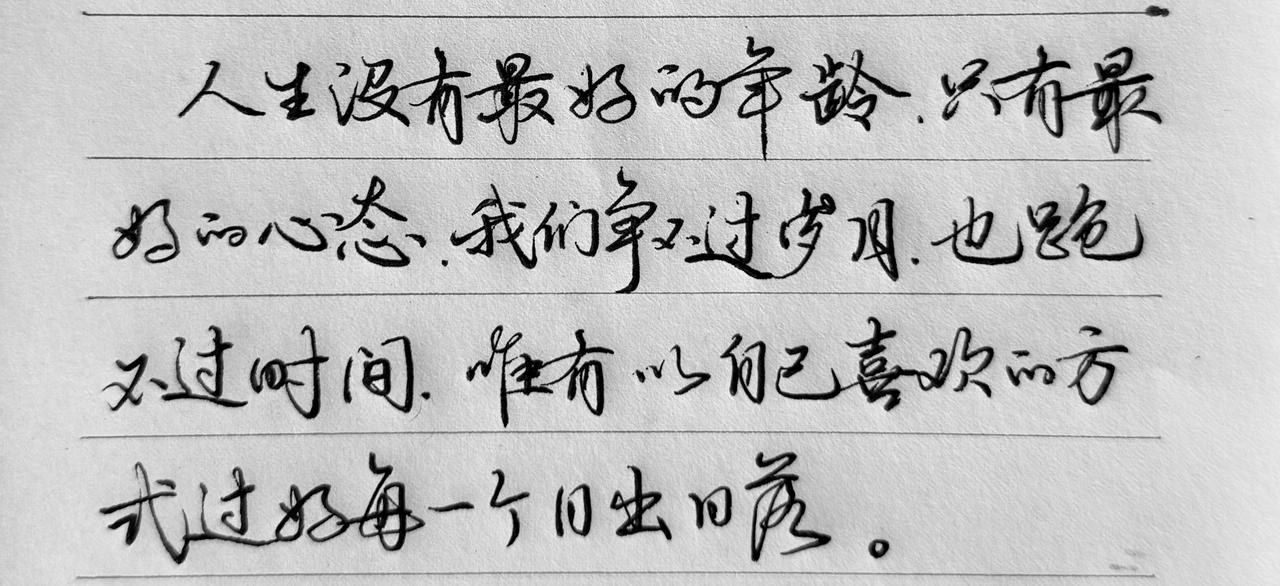 人生没有最好的年龄.只有最
好的心态.我们争不过岁月.也跑
不过时间.唯有以自己喜欢的方
式过好每一个日出日落。